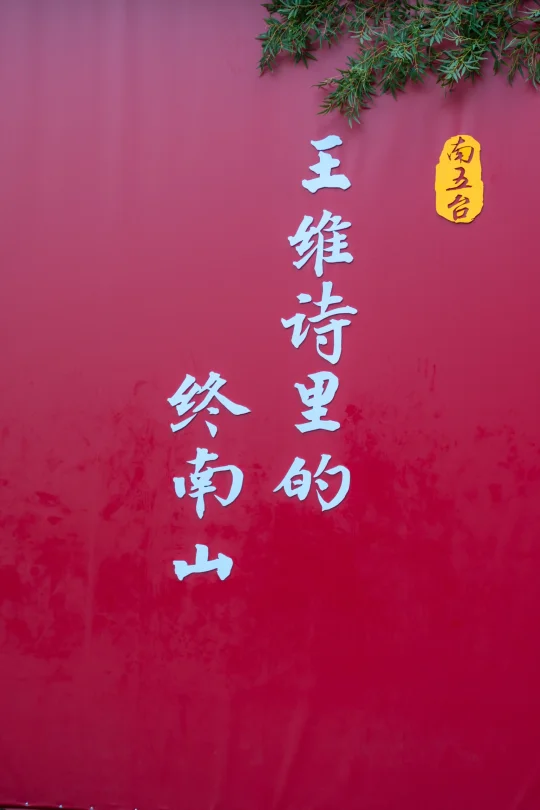 南五台
王维诗里的
终南山